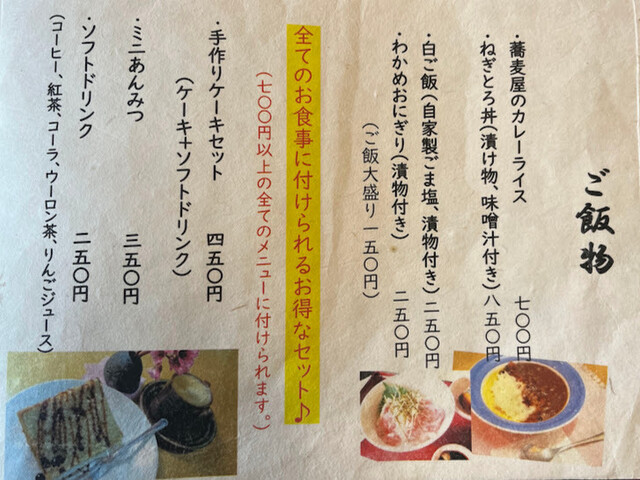 ご飯物
・蕎麦屋のカレーライス 七〇〇円
・ねぎとろ丼(漬け物、味噌汁付き)八五〇円
・白ご飯(自家製ごま塩、漬物付き)二五〇円
・わかめおにぎり(漬物付き) 二五〇円
(ご飯大盛り 一五〇円)
全てのお食事に付けられるお得なセット♪
(七〇〇円以上の全てのメニューに付けられます。)
・手作りケーキセット 四五〇円
(ケーキ+ソフトドリンク)
・ミニあんみつ 三五〇円
・ソフトドリンク 二五〇円
(コーヒー、紅茶、コーラ、ウーロン茶、りんごジュース)